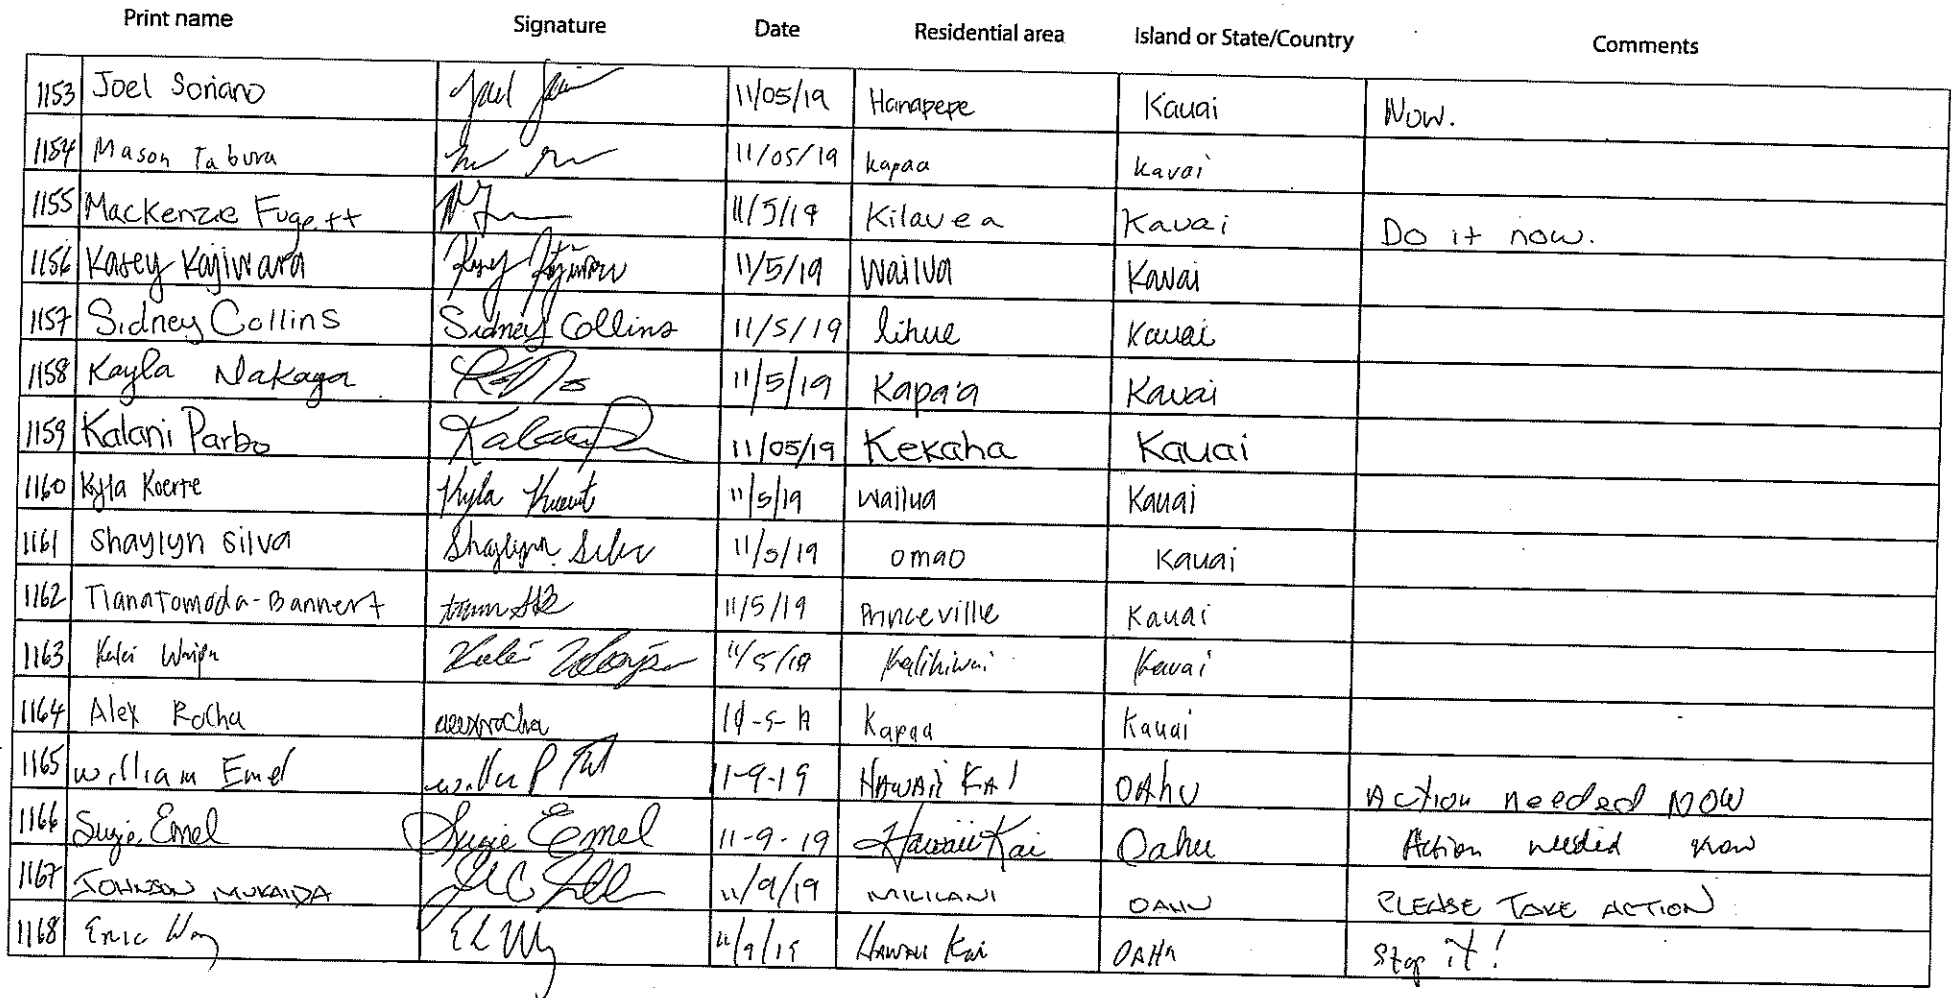 Print name Signature Date Residential area Island or State/Country Comments
1153 Joel Soriano Joel 11/05/19 Hanapepe Kauai Now.
1154 Mason Tabura 11/05/19 kapaa kauai
1155 Mackenzie Fugett 11/5/19 Kilauea Kauai Do it now.
1156 Kasey Kajiwara 11/5/19 Wailua Kauai
1157 Sidney Collins Sidney Collins 11/5/19 lihue Kauai
1158 Kayla Nakaga 11/5/19 Kapa'a Kauai
1159 Kalani Parbo 11/05/19 Kekaha Kauai
1160 Kyla Koerte Kyla 11/5/19 Wailua Kauai
1161 Shaylyn Silva Shaylynn Silva 11/5/19 omao Kauai
1162 Tiana Tomoda-Bannert 11/5/19 Princeville Kauai
1163 11/5/19 Kalihiwai Kauai
1164 Alex Rocha alexrocha Kapaa Kauai
1165 William Emel 11-9-19 HAWAII KAI OAhu Action needed NOW
1166 Suzie Emel Suzie Emel 11-9-19 Hawaii Kai Oahu Action needed now
1167 JOHNSON MUKAIDA 11/9/19 MILILANI OAHU PLEASE TAKE ACTION
1168 Eric 11/9/19 Hawaii Kai OAHU Stop it!